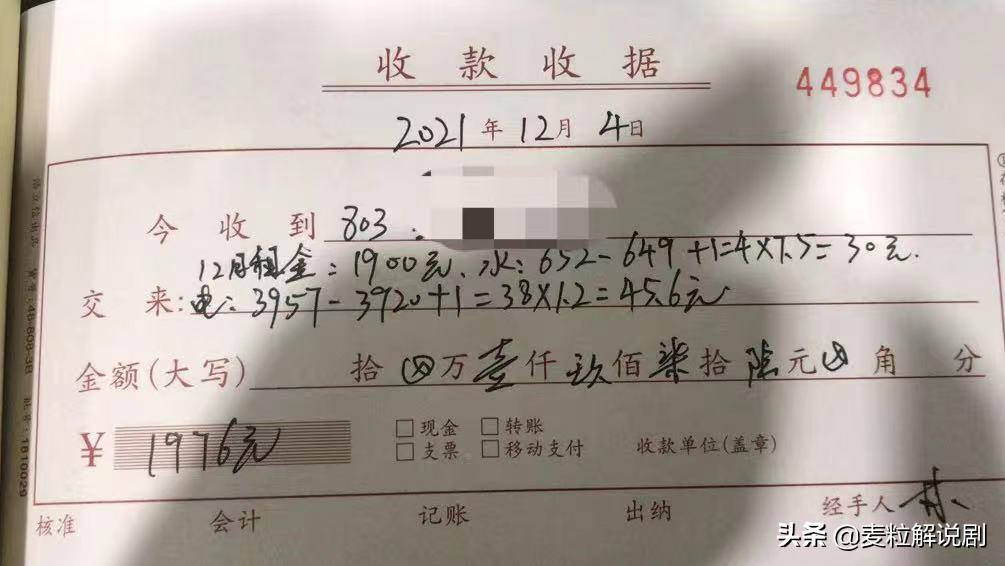 收款收据
449834
2021年12月4日
今收到 803:
12月租金:1900元、水:652-649+1=4×7.5=30元.
交来:电:3957-3920+1=38×1.2=45.6元
金额(大写) 拾 万壹仟玖佰柒拾陆元 角 分
¥ 1976元
□现金 □转账
□支票 □移动支付 收款单位(盖章)
核准 会计 记账 出纳 经手人 林
头条 @麦粒解说剧